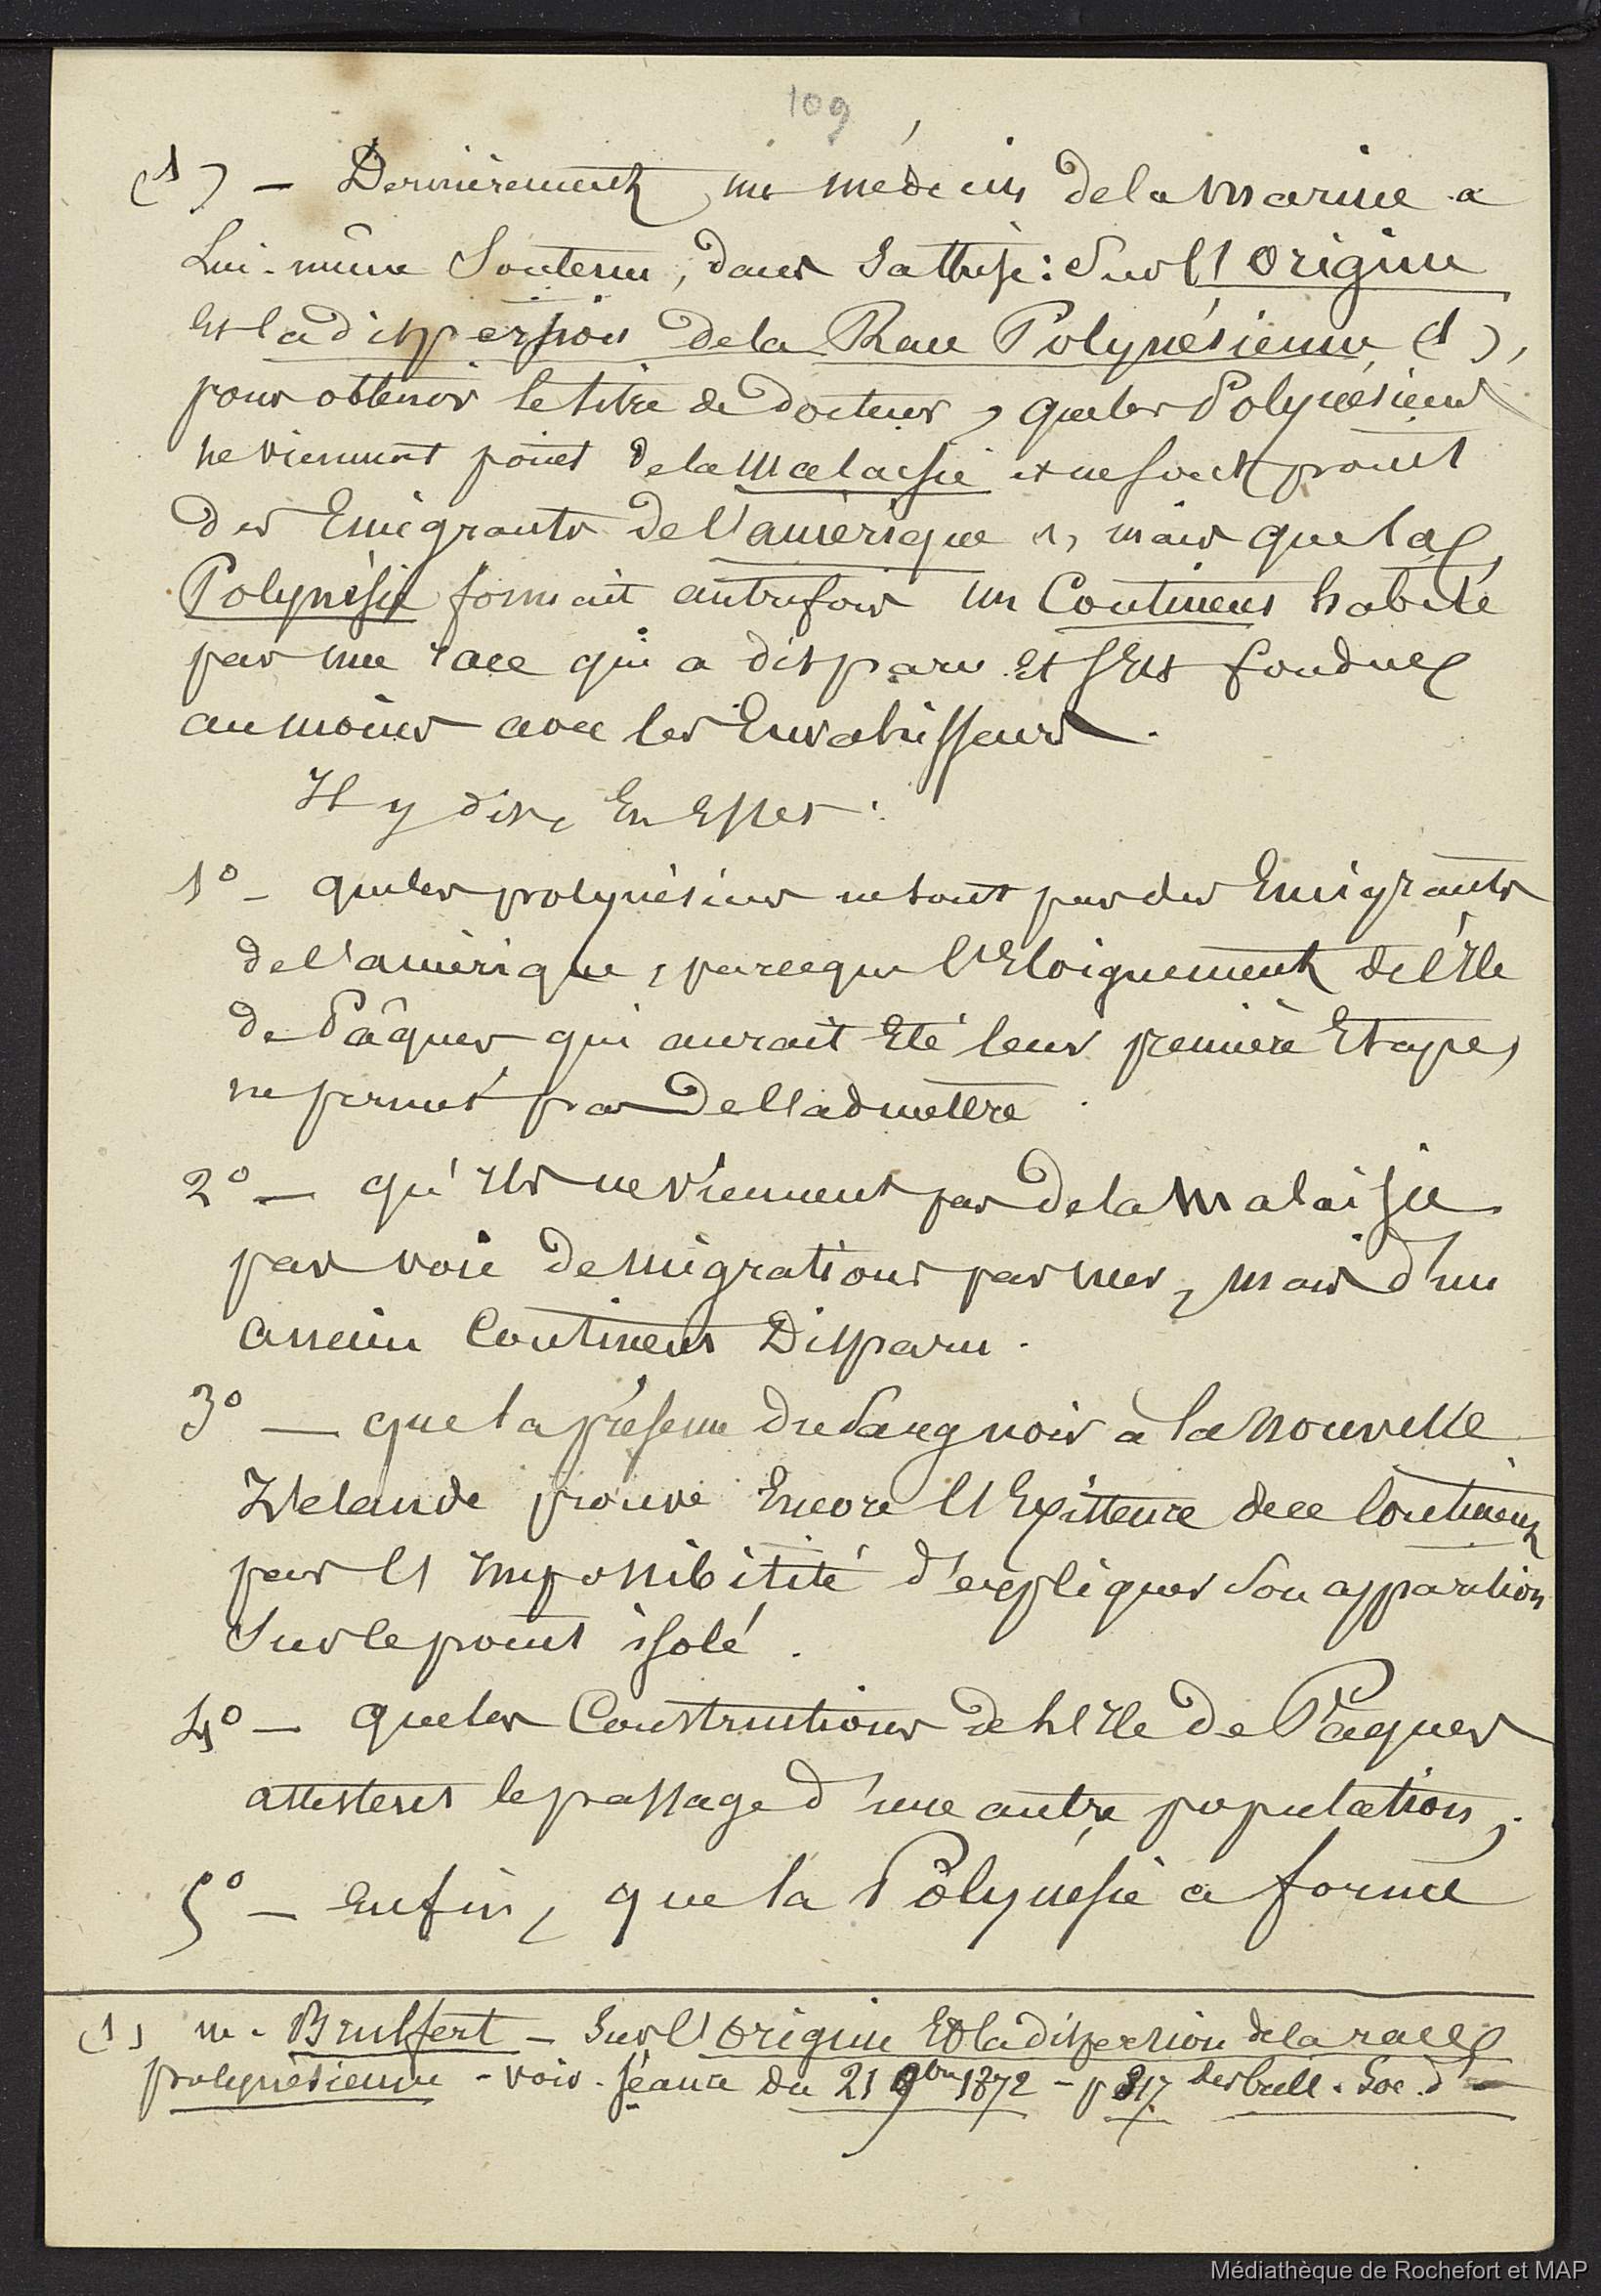 109
(1) - Dernièrement un médecin de la marine a
Lui-même Soutenu, dans Sa thèse: Sur l'Origine
Et la dispersion de la Race Polynésienne (1),
pour obtenir le titre de Docteur, que les Polynésiens
ne viennent point de la Malaisie et ne sont point
des Emigrants de l'amérique, mais que la
Polynésie formait autrefois un Continent habité
par une race qui a disparu Et s'Est fondue
au moins avec les Envahisseurs.
Il y dit, En Effet:
1° - que les polynésiens ne sont pas des Emigrants
de l'amérique, parceque l'Eloignement de l'Ile
de Pâques qui aurait Eté leur première Etape,
ne permet pas de l'admettre.
2° - qu'Ils ne viennent pas de la Malaisie
par voie de migrations par mer, mais d'un
ancien Continent Disparu.
3° - que la présence du Sang noir à la Nouvelle
Zélande prouve Encore l'Existence de ce Continent
par l'Impossibilité d'expliquer Son apparition
Sur le point isolé.
4° - que les Constructions de l'Ile de Pâques
attestent le passage d'une autre population;
5° - enfin, que la Polynésie a formé
(1) M. Brulfert - Sur l'Origine Et la dispersion de la race
polynésienne - voir. Séance du 21 9bre 1872 - p 817 des bull. Soc. d'
Médiathèque de Rochefort et MAP